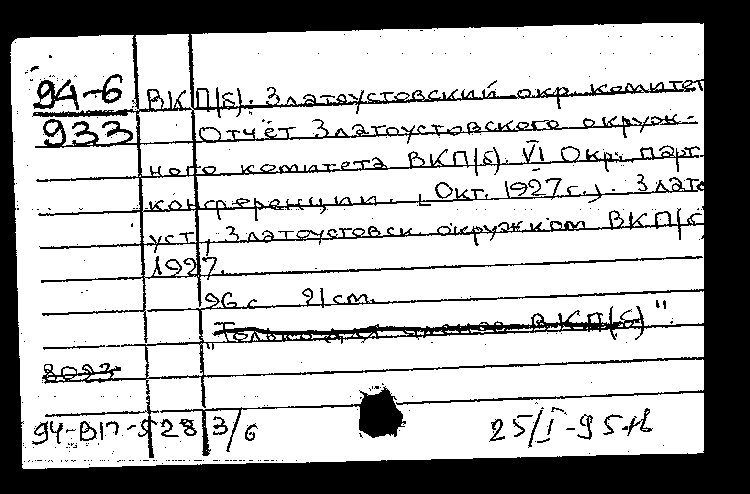 94-6
933
ВКП(б). Златоустовский окр. комитет
Отчёт Златоустовского окруж-
ного комитета ВКП(б). VI Окр. парт.
конференции. [Окт. 1927 г.]. Злато
уст, Златоустовск. окружком ВКП(б)
1927.
96 с 21 cm.
"Только для членов ВКП(б)".
8023
94-ВП-5 28 3/6
25/I-95